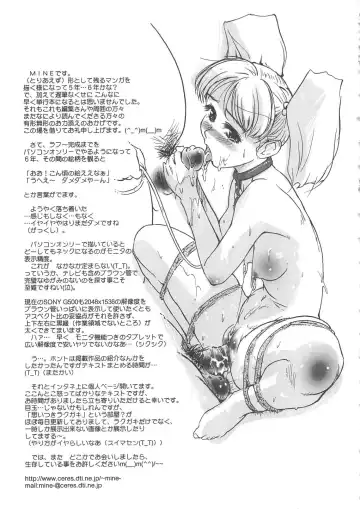 MINEです。
(とりあえず)形として残るマンガを
描く様になって5年…6年かな?
で、加えて遅筆なくせにこんなに
早く単行本になるとは思いませんでした。
それもこれも編集さんや周囲の方々
まだなにより読んでくださる方々の
有形無形のお力添えのおかげです。
この場を借りてお礼申し上げます。(^_^)m(__)m
さて、ラフ~完成までを
パソコンオンリーでやるようになって
6年、その間の絵柄を観ると
「おお!こん頃の絵ええなぁ」
「うへえー ダメダメやーん」
とか言葉がでます。
ようやく落ち着いた
…感じもしなく…もなく
…イヤイヤやはりまだダメですね
(がっくし)
パソコンオンリーで描いていると
どーしてもネックになるのがモニタの
表示精度。
これが なかなか定まらない(T_T)。
っていうか、テレビも含めブラウン管で
完璧なゆがみのないのを探す事こそ
至難ですね(泣)。
現在のSONY G500も2048x1536の解像度を
ブラウン管いっぱいに表示して使いたくとも
アスペクト比の妥協点がそれを許さず、
上下左右に黒縁(作業領域でないところ)が
太くできてまいます。
ハァ… 早く モニタ機能つきのタブレットで
広い解像度で安いヤツでないかなあ…(シクシク)
う…。ホントは掲載作品の紹介なんかを
したかったんですがテキストまとめる時間が…
(T_T)(またかい)
それとインタネ上に個人ページ開いてます。
ここんとこ怒ってばかりなテキストですが、
お時間がありましたら立ち寄りいただけると幸いです。
目玉…じゃないけもしれんですが、
「思いつきラクガキ」という部屋?が
ほぼ毎日更新してっており、ラクガキだけでなく、
一時しか展示出来ない画像とか展示したり
してますする~。
(やり方がイヤらしいなあ(スイマセン(T_T))
では、また どこかでお会いしましたら、
生存している事をお許しくださいm(__)m(^^)/~~
http://www.ceres.dti.ne.jp/~mine-
mail:mine-@ceres.dti.ne.jp